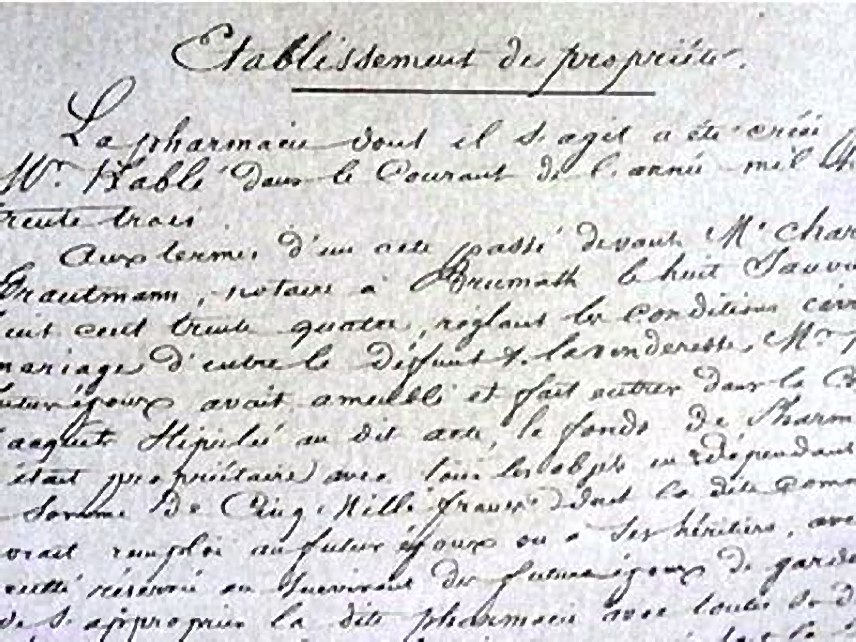 Etablissement de propriété.
La pharmacie dont il s'agit a été créée
Mr. Hablé dans le Courant de l'année mil
trente trois
Aux termes d'un acte passé devant Me Char
Trautmann, notaire à Brumath le huit Janvi
huit cent trente quatre, réglant les conditions civi
mariage d'entre le défunt & la venderesse, Mr
futur époux avait ameubli et fait entrer dans la Co
d'acquets stipulée au dit acte, le fonds de Pharm
était propriétaire avec tous les objets en dépendant
somme de Cinq Mille francs dont la dite comm
vrait remploi au futur époux ou à ses héritiers, avec
culté réservée au Survivant des futurs époux de garde
de s'approprier la dite pharmacie avec toutes